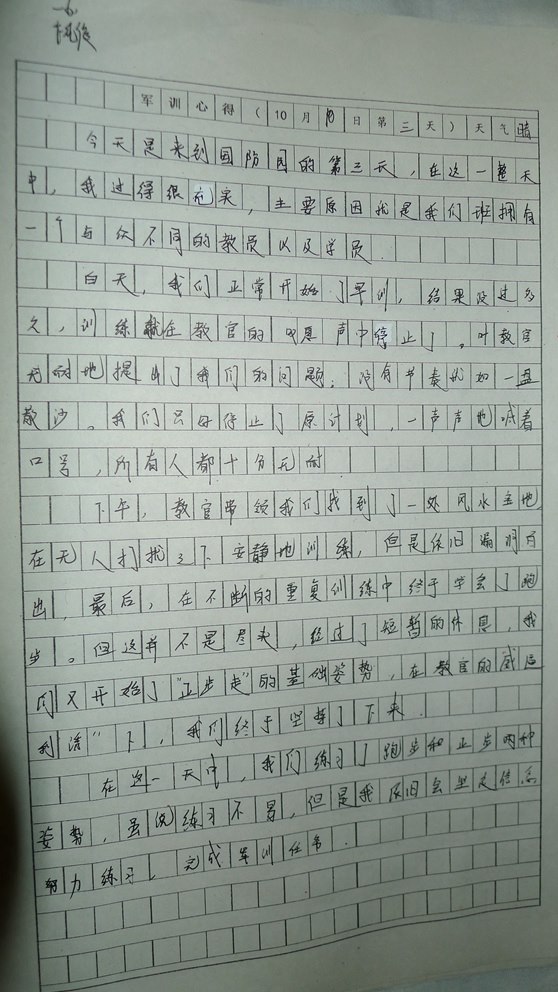 军训心得(10月10日第三天)天气晴
今天是来到国防园的第三天,在这一整天
中,我过得很充实,主要原因就是我们班拥有
一个与众不同的教员以及学员.
白天,我们正常开始了早训,结果没过多
久,训练就在教官的叹息声中停止了。叶教官
无耐地提出了我们的问题:没有节奏犹如一盘
散沙。我们只好停止了原计划,一声声地喊着
口号,所有人都十分无耐
下午,教官带领我们找到了一处风水宝地
在无人打扰之下安静地训练,但是依旧漏洞百
出,最后,在不断的重复训练中终于学会了跑
步。但这并不是尽头,经过了短暂的休息,我
们又开始了"正步走"的基础姿势,在教官的威逼
利诱"下,我们终于坚持了下来.
在这一天中,我们练习了跑步和正步两种
姿势,虽说练习不易,但是我依旧会坚定信念
努力练习,完成军训任务.